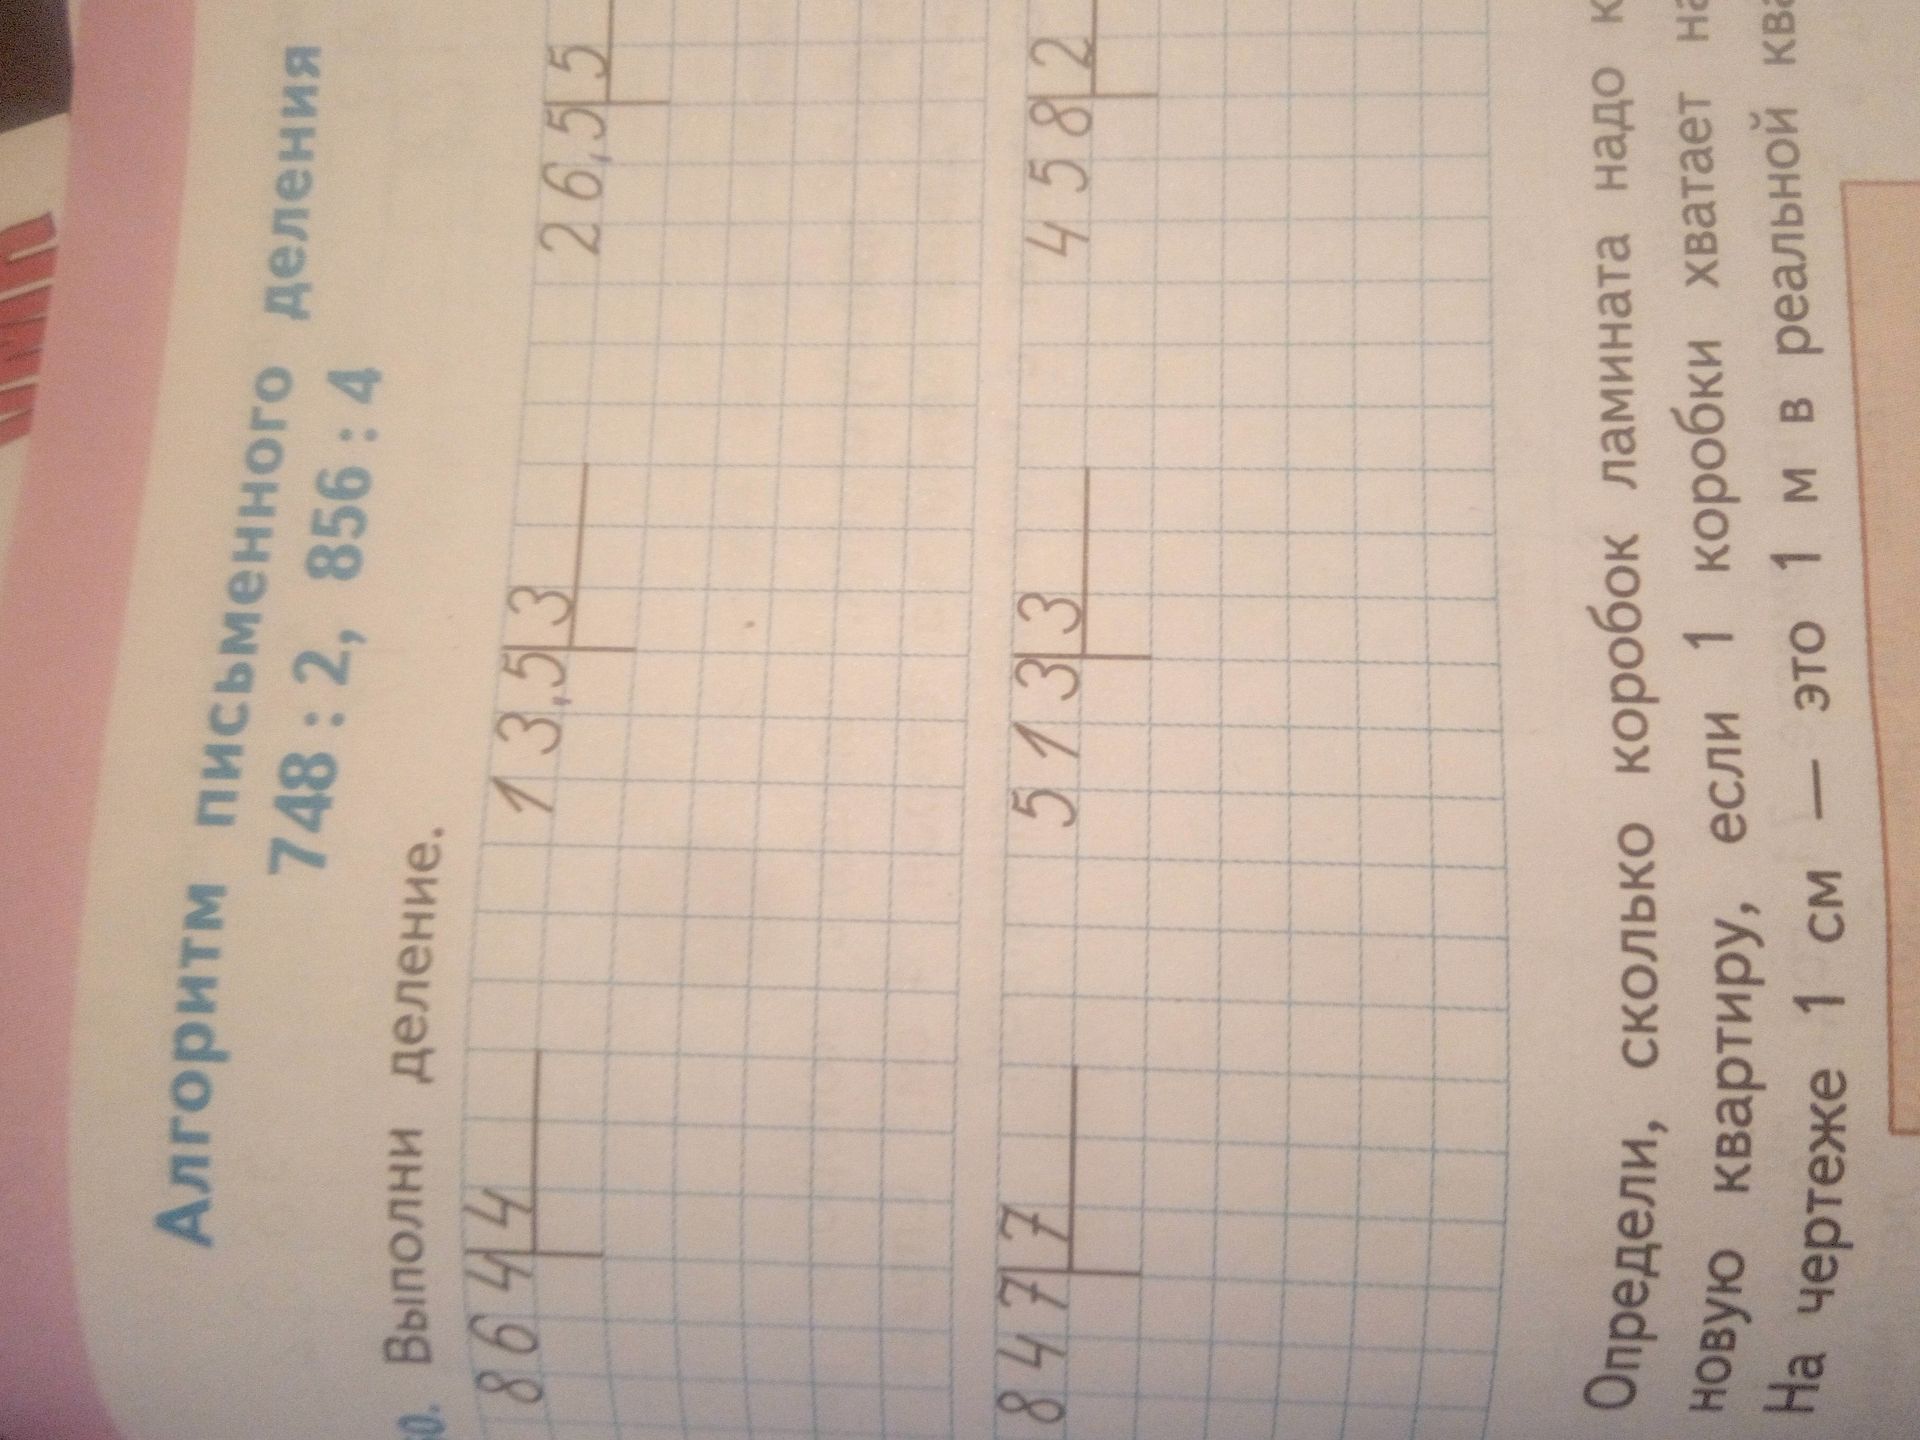 Алгоритм письменного деления
748 : 2, 856 : 4
60. Выполни деление.
864 4 13,5 3 26,5 5
847 7 513 3 458 2
Определи, сколько коробок ламината надо
новую квартиру, если 1 коробки хватает
На чертеже 1 см — это 1 м в реальной